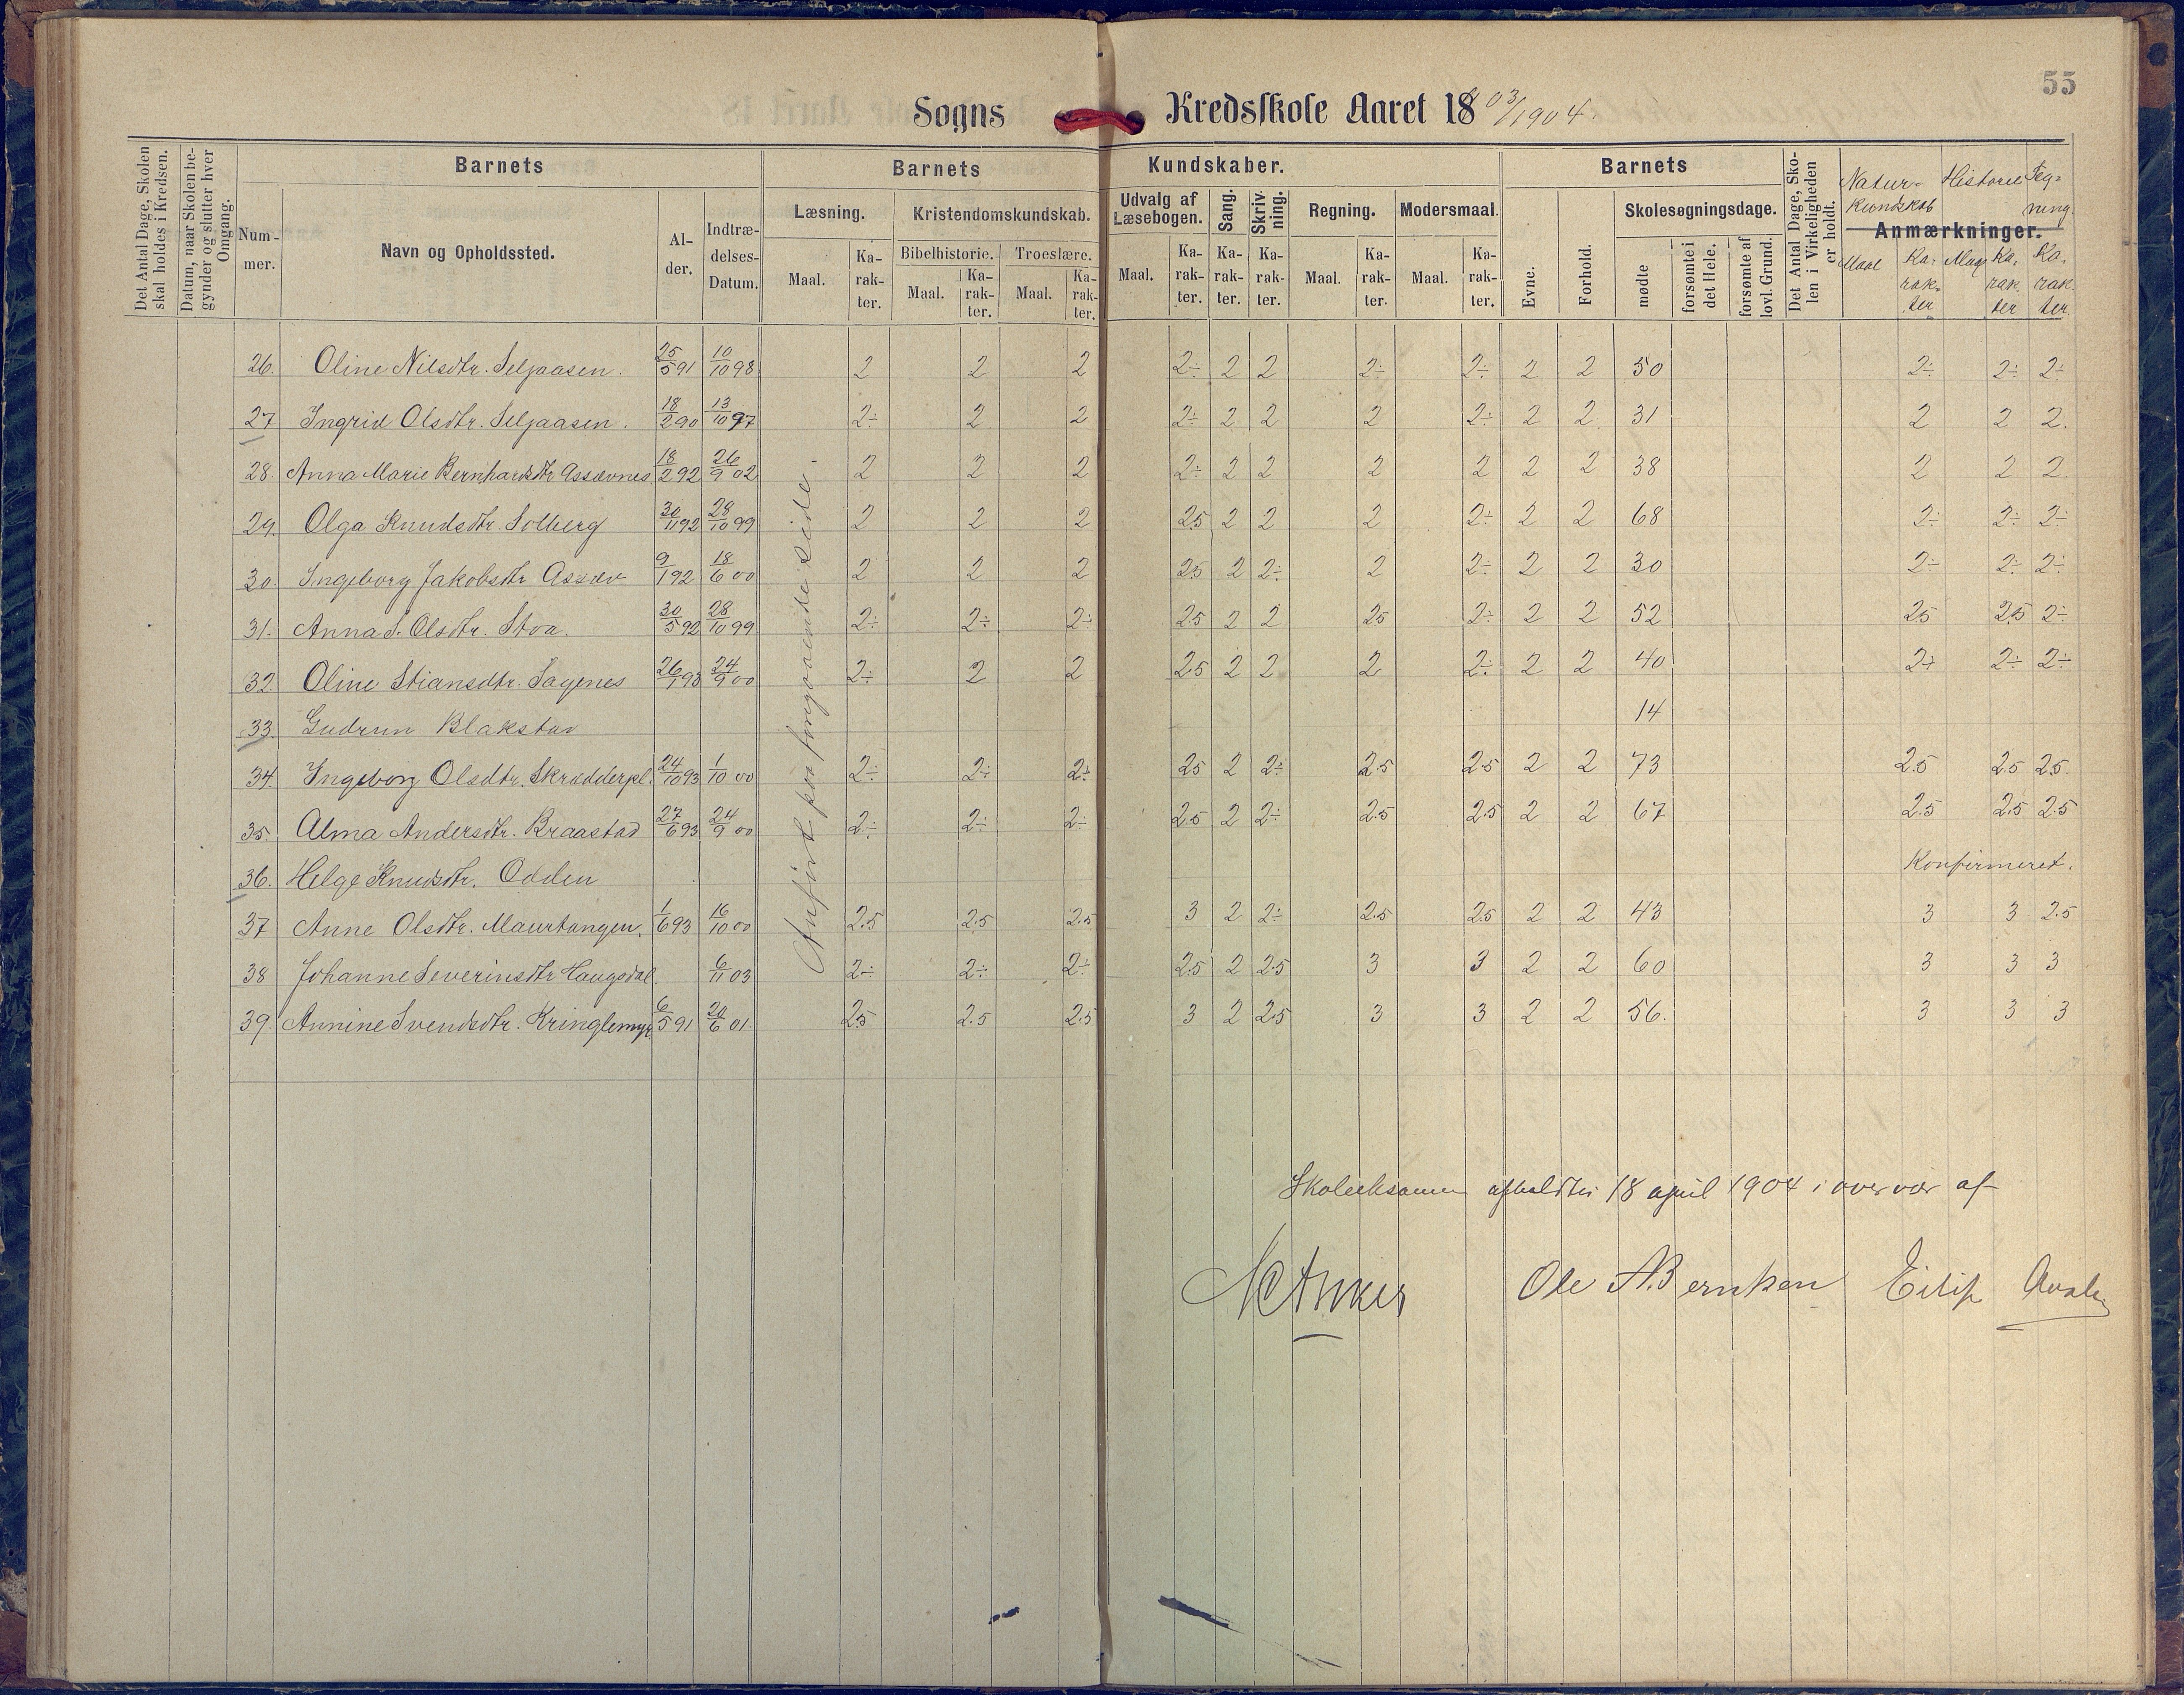 55
Sogns Kredsskole Aaret 1803/1904.
Det Antal Dage, Skolen skal holdes i Kredsen.
Datum, naar Skolen begynder og slutter hver Omgang.
Barnets Barnets Kundskaber. Barnets
Det Antal Dage, Skolen i Virkeligheden er holdt.
Naturkundskab Historie Tegning.
Anmærkninger.
Nummer. Navn og Opholdssted. Alder. Indtrædelses-Datum. Læsning. Kristendomskundskab. Udvalg af Læsebogen. Sang. Skrivning. Regning. Modersmaal. Evne. Forhold. Skolesøgningsdage.
Bibelhistorie. Troeslære. mødte forsømte i det Hele. forsømte af lovl. Grund.
Maal. Karakter. Maal. Karakter. Maal. Karakter. Maal. Karakter. Karakter. Karakter. Maal. Karakter. Maal. Karakter. Maal Karakter Maal Karakter Karakter
26. Oline Nilsdtr. Seljaasen. 25/5 91 10/10 98 2 2 2 2÷ 2 2 2÷ 2÷ 2 2 50 2÷ 2÷ 2÷
27 Ingrid Olsdtr. Seljaasen. 18/2 90 13/10 97 2÷ 2 2 2÷ 2 2 2 2÷ 2 2 31 2 2 2.
28. Anna Marie Bernhardsdtr Assævnes 18/2 92 26/9 02 2 2 2 2÷ 2 2 2 2 2 2 38 2 2 2.
29. Olga Knudsdtr. Solberg 30/11 92 28/10 99 2 2 2 2.5 2 2 2 2÷ 2 2 68 2÷ 2÷ 2÷
30. Ingeborg Jakobsdtr Assæv 9/1 92 18/6 00 2 2 2 2.5 2 2÷ 2 2÷ 2 2 30 2÷ 2÷ 2÷
31. Anna S. Olsdtr. Stoa. 30/5 92 28/10 99 2÷ 2÷ 2÷ 2.5 2 2 2.5 2÷ 2 2 52 2.5 2.5 2÷
32. Oline Stiansdtr. Sagenes 26/1 93 24/9 00 2÷ 2 2 2.5 2 2 2 2÷ 2 2 40 2÷ 2÷ 2÷
33. Gudrun Blakstad 14
34. Ingeborg Olsdtr. Skrædderpl. 24/10 93 1/10 00 2÷ 2÷ 2÷ 2.5 2 2÷ 2.5 2.5 2 2 73 2.5 2.5 2.5.
35. Alma Andersdtr. Braastad 27/6 93 24/9 00 2÷ 2÷ 2÷ 2.5 2 2÷ 2.5 2.5 2 2 67 2.5 2.5 2.5
36. Helge Knudsdtr. Odden Konfirmeret.
37 Anne Olsdtr. Maurtangen. 1/6 93 16/10 00 2.5 2.5 2.5 3 2 2÷ 2.5 2.5 2 2 43 3 3 2.5
38 Johanne Severinsdtr Haugsdal. 6/11 03 2÷ 2÷ 2÷ 2.5 2 2.5 3 3 2 2 60 3 3 3
39. Annine Svendsdtr. Kringlemyr 6/5 91 20/6 01. 2.5 2.5 2.5 3 2 2.5 3 3 2 2 56. 3 3 3
Anført paa foregaaende side.
Skoleeksamen afholdtes 18 april 1904 i overvær af
Anker Ole A. Berntsen Eilif